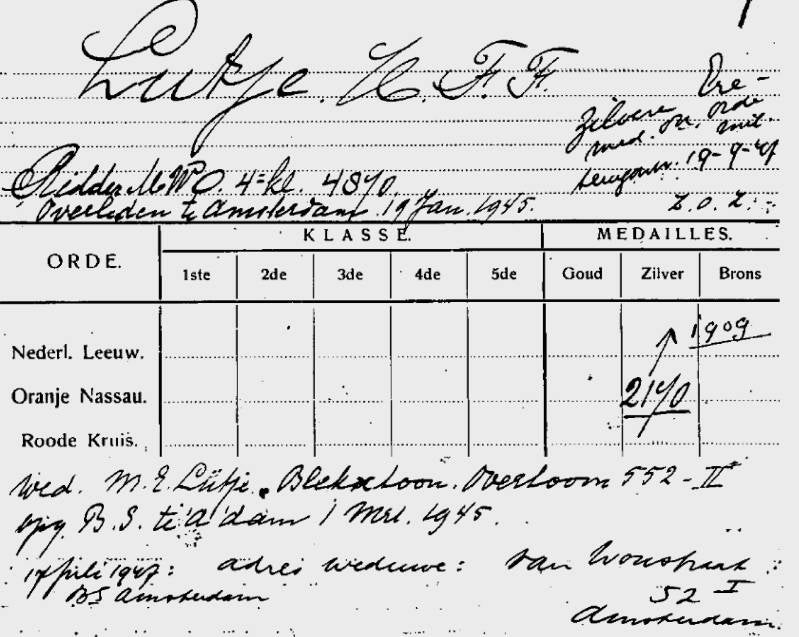 Lutje. H. F. F.
Ere-
Zilveren orde
med. on. mil.
terugontv. 19-9-47
Z.O.Z.
Ridder M.W.O. 4e kl. 4870.
Overleden te Amsterdam 19 Jan. 1945.
ORDE. KLASSE. MEDAILLES.
1ste 2de 3de 4de 5de Goud Zilver Brons
Nederl. Leeuw. 1909
Oranje Nassau. 2170
Roode Kruis.
Wed. M. E. Lütje. Overtoom 552-II
opg. B.S. te A'dam 1 Mrt. 1945.
1947: adres weduwe: van Woustraat
BS Amsterdam 52 I
Amsterdam.